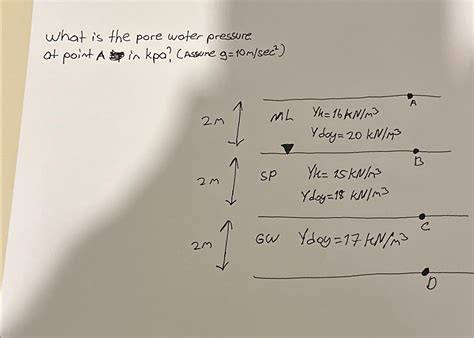 What is the pore water pressure
at point A in kpa? (Assume g=10m/sec²)
A
2m ML γk=16kN/m³
γdoy=20 kN/m³
B
2m SP γk=15kN/m³
γdoy=18 kN/m³
C
2m GW γdoy=17kN/m³
D